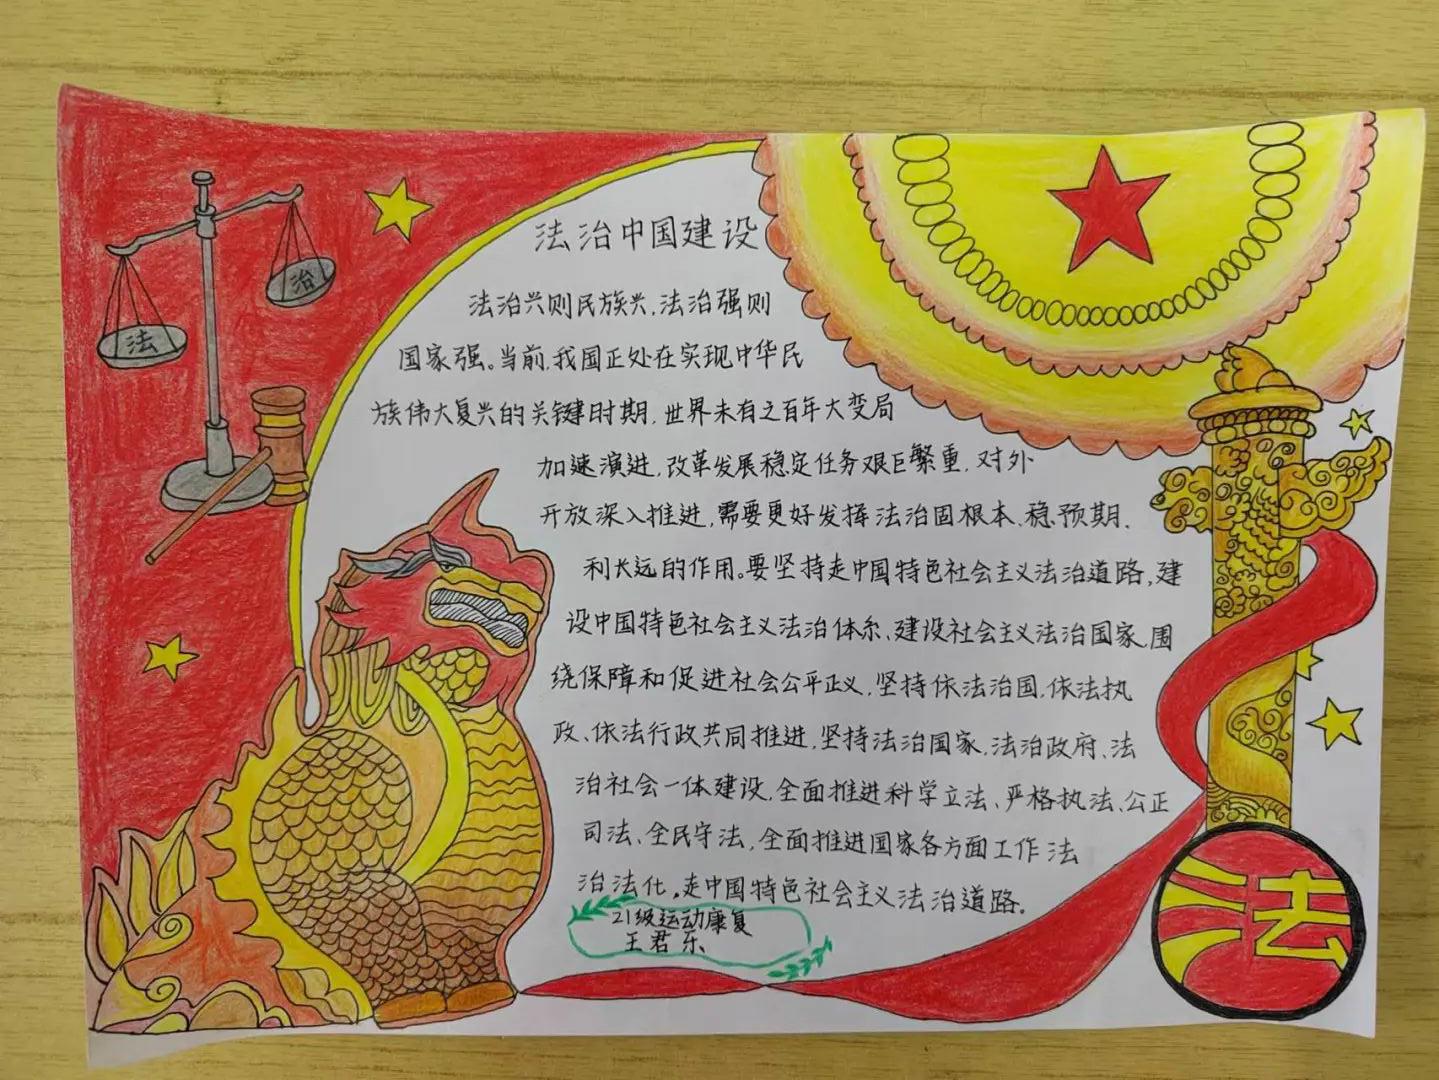 法治中国建设
治
法
法治兴则民族兴,法治强则
国家强。当前,我国正处在实现中华民
族伟大复兴的关键时期,世界未有之百年大变局
加速演进,改革发展稳定任务艰巨繁重,对外
开放深入推进,需要更好发挥法治固根本、稳预期、
利长远的作用。要坚持走中国特色社会主义法治道路,建
设中国特色社会主义法治体系、建设社会主义法治国家,围
绕保障和促进社会公平正义,坚持依法治国、依法执
政、依法行政共同推进,坚持法治国家、法治政府、法
治社会一体建设,全面推进科学立法、严格执法、公正
司法、全民守法,全面推进国家各方面工作法
治法化,走中国特色社会主义法治道路。
21级运动康复
王君乐
法